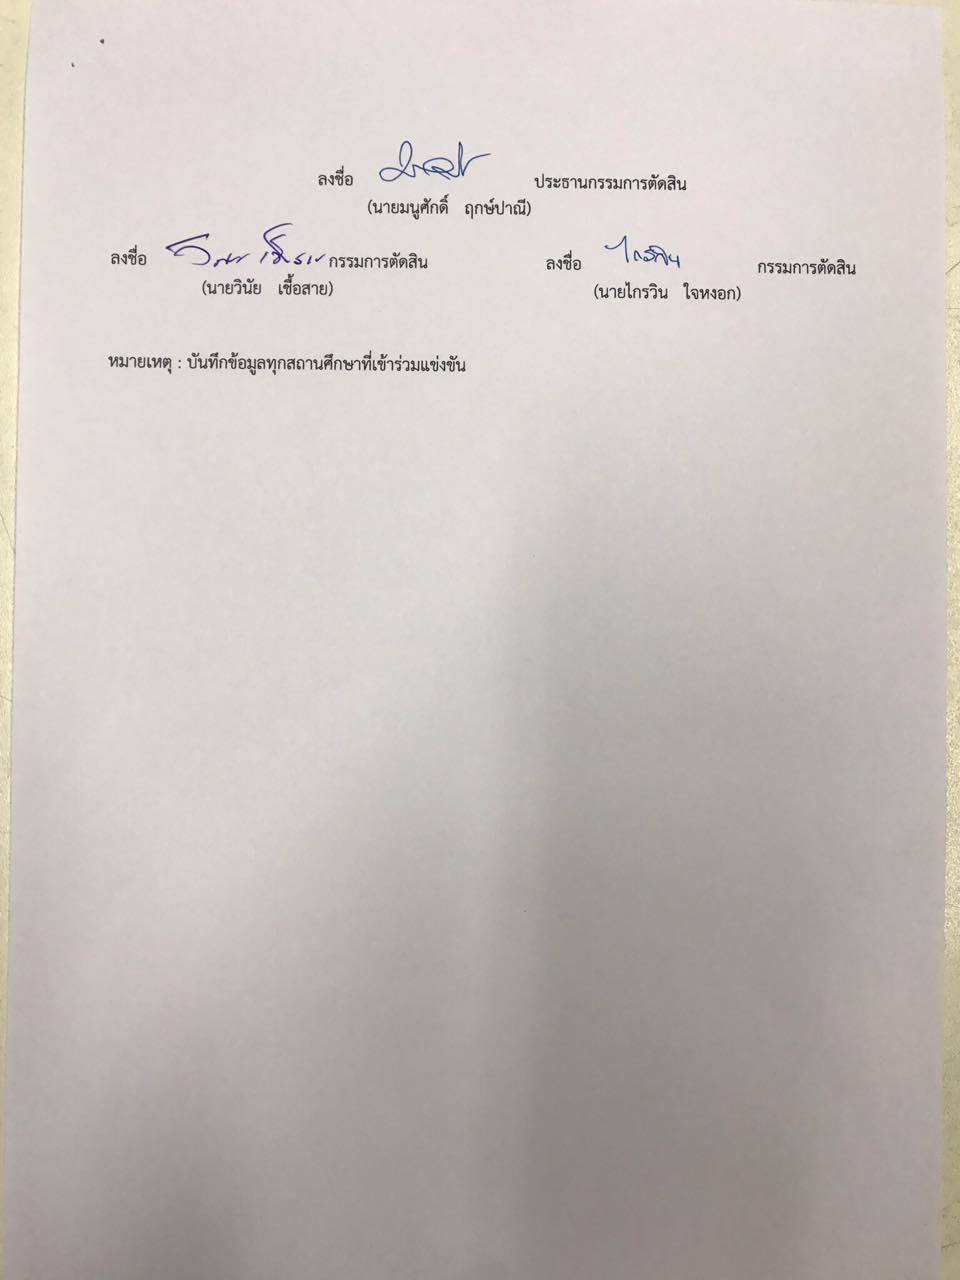 ลงชื่อ ประธานกรรมการตัดสิน
(นายมนูศักดิ์ ฤกษ์ปาณี)
ลงชื่อ วินัย เชื้อสาย กรรมการตัดสิน ลงชื่อ ไกรวิน กรรมการตัดสิน
(นายวินัย เชื้อสาย) (นายไกรวิน ใจหงอก)
หมายเหตุ : บันทึกข้อมูลทุกสถานศึกษาที่เข้าร่วมแข่งขัน